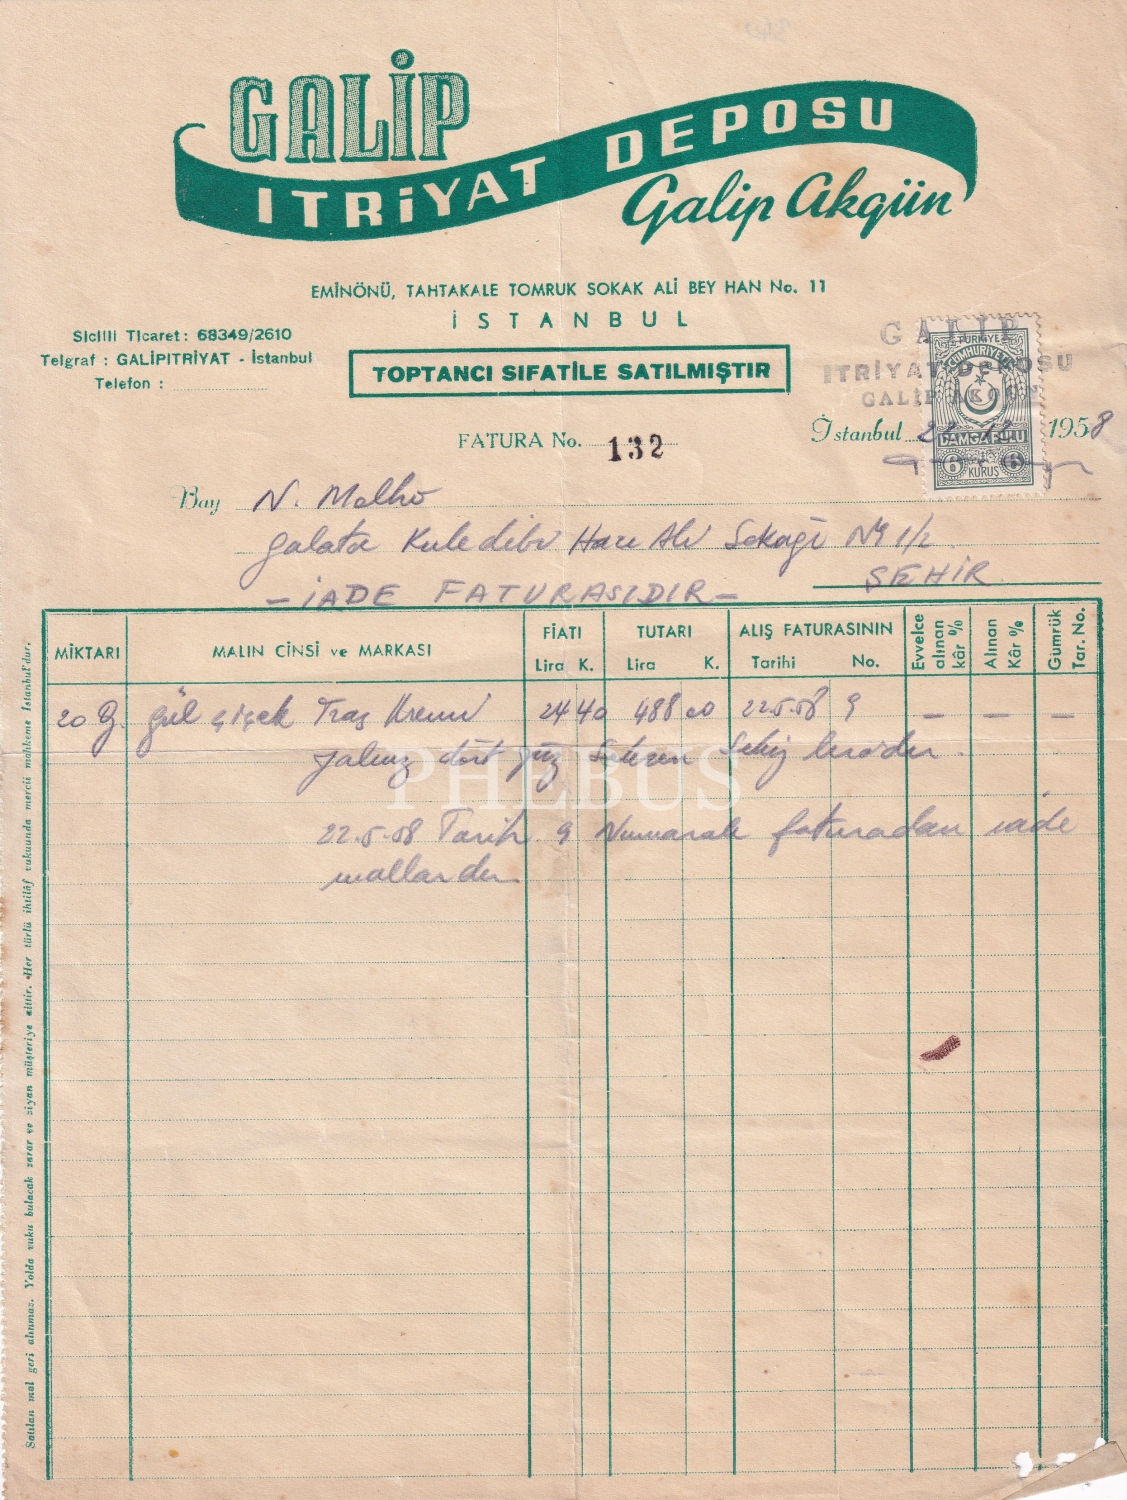 GALİP
ITRİYAT DEPOSU
Galip Akgün
EMİNÖNÜ, TAHTAKALE TOMRUK SOKAK ALİ BEY HAN No. 11
İSTANBUL
Sicilli Ticaret: 68349/2610
Telgraf : GALİPITRİYAT - İstanbul
Telefon :
TOPTANCI SIFATİLE SATILMIŞTIR
GALİP
ITRİYAT DEPOSU
GALİP AKGÜN
TÜRKİYE
CUMHURİYETİ
DAMGA PULU
6 KURUŞ 6
FATURA No. 132
İstanbul 1958
Bay N. Malho
Galata Kuledibi Hacı Ali Sokağı No 1/2
ŞEHİR
- İADE FATURASIDIR -
MİKTARI MALIN CİNSİ ve MARKASI FİATI Lira K. TUTARI Lira K. ALIŞ FATURASININ Tarihi No. Evvelce alınan kâr % Alınan Kâr % Gümrük Tar. No.
20 gül çiçek Traş Kremi 24 40 488 00 22.5.58 9 — — —
Yalınız dört yüz Seksen Sekiz liradır.
22.5.58 Tarih 9 Numaralı faturadan iade
mallardır.
Satılan mal geri alınmaz. Yolda vuku bulacak zarar ve ziyan müşteriye aittir. Her türlü ihtilâf vukuunda mercii mahkeme İstanbul'dur.
PHEBUS